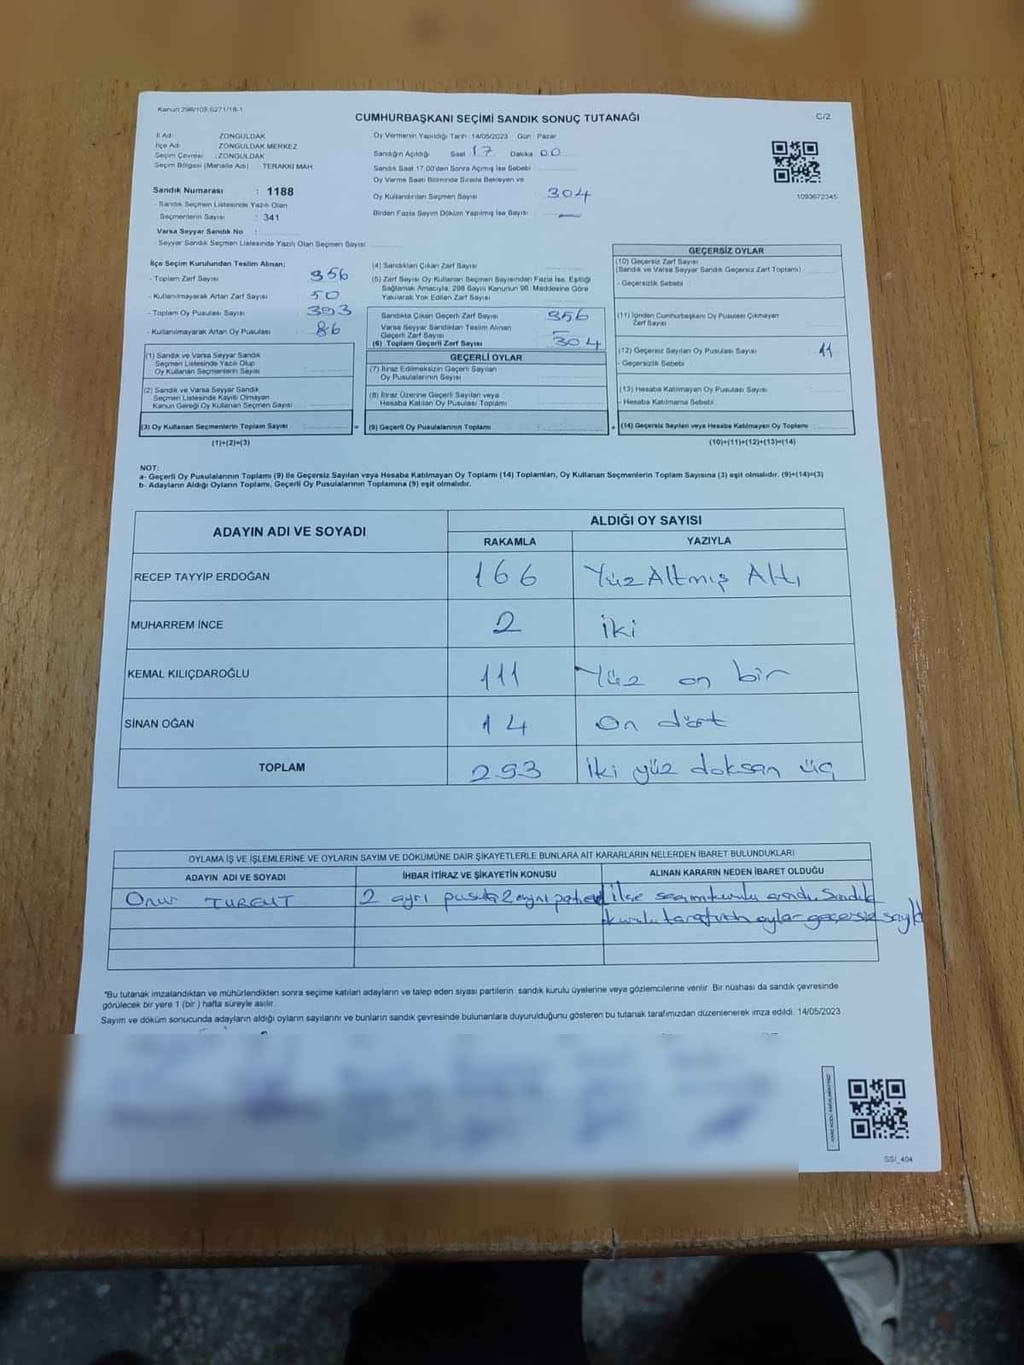 Kanun 298/105 6271/18-1
CUMHURBAŞKANI SEÇİMİ SANDIK SONUÇ TUTANAĞI
C/2
İl Adı : ZONGULDAK
İlçe Adı : ZONGULDAK MERKEZ
Seçim Çevresi : ZONGULDAK
Seçim Bölgesi (Mahalle Adı) : TERAKKİ MAH.
Sandık Numarası : 1188
- Sandık Seçmen Listesinde Yazılı Olan
Seçmenlerin Sayısı : 341
Varsa Seyyar Sandık No :
- Seyyar Sandık Seçmen Listesinde Yazılı Olan Seçmen Sayısı
Oy Vermenin Yapıldığı Tarih : 14/05/2023 Gün : Pazar
Sandığın Açıldığı Saat 17 Dakika 00
Sandık Saat 17.00'den Sonra Açılmış İse Sebebi
Oy Verme Saati Bitiminde Sırada Bekleyen ve
Oy Kullandırılan Seçmen Sayısı 304
Birden Fazla Sayım Döküm Yapılmış İse Sayısı —
1093672345
İlçe Seçim Kurulundan Teslim Alınan;
- Toplam Zarf Sayısı 356
- Kullanılmayarak Artan Zarf Sayısı 50
- Toplam Oy Pusulası Sayısı 393
- Kullanılmayarak Artan Oy Pusulası 86
(1) Sandık ve Varsa Seyyar Sandık
Seçmen Listesinde Yazılı Olup
Oy Kullanan Seçmenlerin Sayısı
(2) Sandık ve Varsa Seyyar Sandık
Seçmen Listesinde Kayıtlı Olmayan
Kanun Gereği Oy Kullanan Seçmen Sayısı
(3) Oy Kullanan Seçmenlerin Toplam Sayısı
(1)+(2)=(3)
(4) Sandıktan Çıkan Zarf Sayısı
(5) Zarf Sayısı Oy Kullanan Seçmen Sayısından Fazla İse, Eşitliği
Sağlamak Amacıyla; 298 Sayılı Kanunun 98. Maddesine Göre
Yakılarak Yok Edilen Zarf Sayısı
Sandıkta Çıkan Geçerli Zarf Sayısı 356
Varsa Seyyar Sandıktan Teslim Alınan
Geçerli Zarf Sayısı
(6) Toplam Geçerli Zarf Sayısı 304
GEÇERLİ OYLAR
(7) İtiraz Edilmeksizin Geçerli Sayılan
Oy Pusulalarının Sayısı
(8) İtiraz Üzerine Geçerli Sayılan veya
Hesaba Katılan Oy Pusulası Toplamı
= (9) Geçerli Oy Pusulalarının Toplamı
GEÇERSİZ OYLAR
(10) Geçersiz Zarf Sayısı
(Sandık ve Varsa Seyyar Sandık Geçersiz Zarf Toplamı)
- Geçersizlik Sebebi
(11) İçinden Cumhurbaşkanı Oy Pusulası Çıkmayan
Zarf Sayısı
(12) Geçersiz Sayılan Oy Pusulası Sayısı 11
- Geçersizlik Sebebi
(13) Hesaba Katılmayan Oy Pusulası Sayısı
- Hesaba Katılmama Sebebi
+ (14) Geçersiz Sayılan veya Hesaba Katılmayan Oy Toplamı
(10)+(11)+(12)+(13)=(14)
NOT:
a- Geçerli Oy Pusulalarının Toplamı (9) ile Geçersiz Sayılan veya Hesaba Katılmayan Oy Toplamı (14) Toplamları, Oy Kullanan Seçmenlerin Toplam Sayısına (3) eşit olmalıdır. (9)+(14)=(3)
b- Adayların Aldığı Oyların Toplamı, Geçerli Oy Pusulalarının Toplamına (9) eşit olmalıdır.
ADAYIN ADI VE SOYADI ALDIĞI OY SAYISI
RAKAMLA YAZIYLA
RECEP TAYYİP ERDOĞAN 166 Yüz Altmış Altı
MUHARREM İNCE 2 iki
KEMAL KILIÇDAROĞLU 111 Yüz on bir
SİNAN OĞAN 14 On dört
TOPLAM 293 İki yüz doksan üç
OYLAMA İŞ VE İŞLEMLERİNE VE OYLARIN SAYIM VE DÖKÜMÜNE DAİR ŞİKAYETLERLE BUNLARA AİT KARARLARIN NELERDEN İBARET BULUNDUKLARI
ADAYIN ADI VE SOYADI İHBAR İTİRAZ VE ŞİKAYETİN KONUSU ALINAN KARARIN NEDEN İBARET OLDUĞU
Onur TURGUT 2 ayrı pusula 2 ayrı ilçe seçim kurulu arandı. Sandık
kurulu tarafından oylar geçersiz sayıldı
*Bu tutanak imzalandıktan ve mühürlendikten sonra seçime katılan adayların ve talep eden siyasi partilerin sandık kurulu üyelerine veya gözlemcilerine verilir. Bir nüshası da sandık çevresinde
görülecek bir yere 1 (bir) hafta süreyle asılır.
Sayım ve döküm sonucunda adayların aldığı oyların sayılarını ve bunların sandık çevresinde bulunanlara duyurulduğunu gösteren bu tutanak tarafımızdan düzenlenerek imza edildi. 14/05/2023
SSI_404